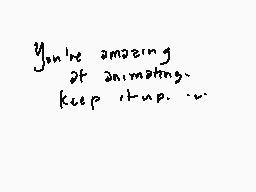 You're amazing
at animating.
keep it up. ·~·